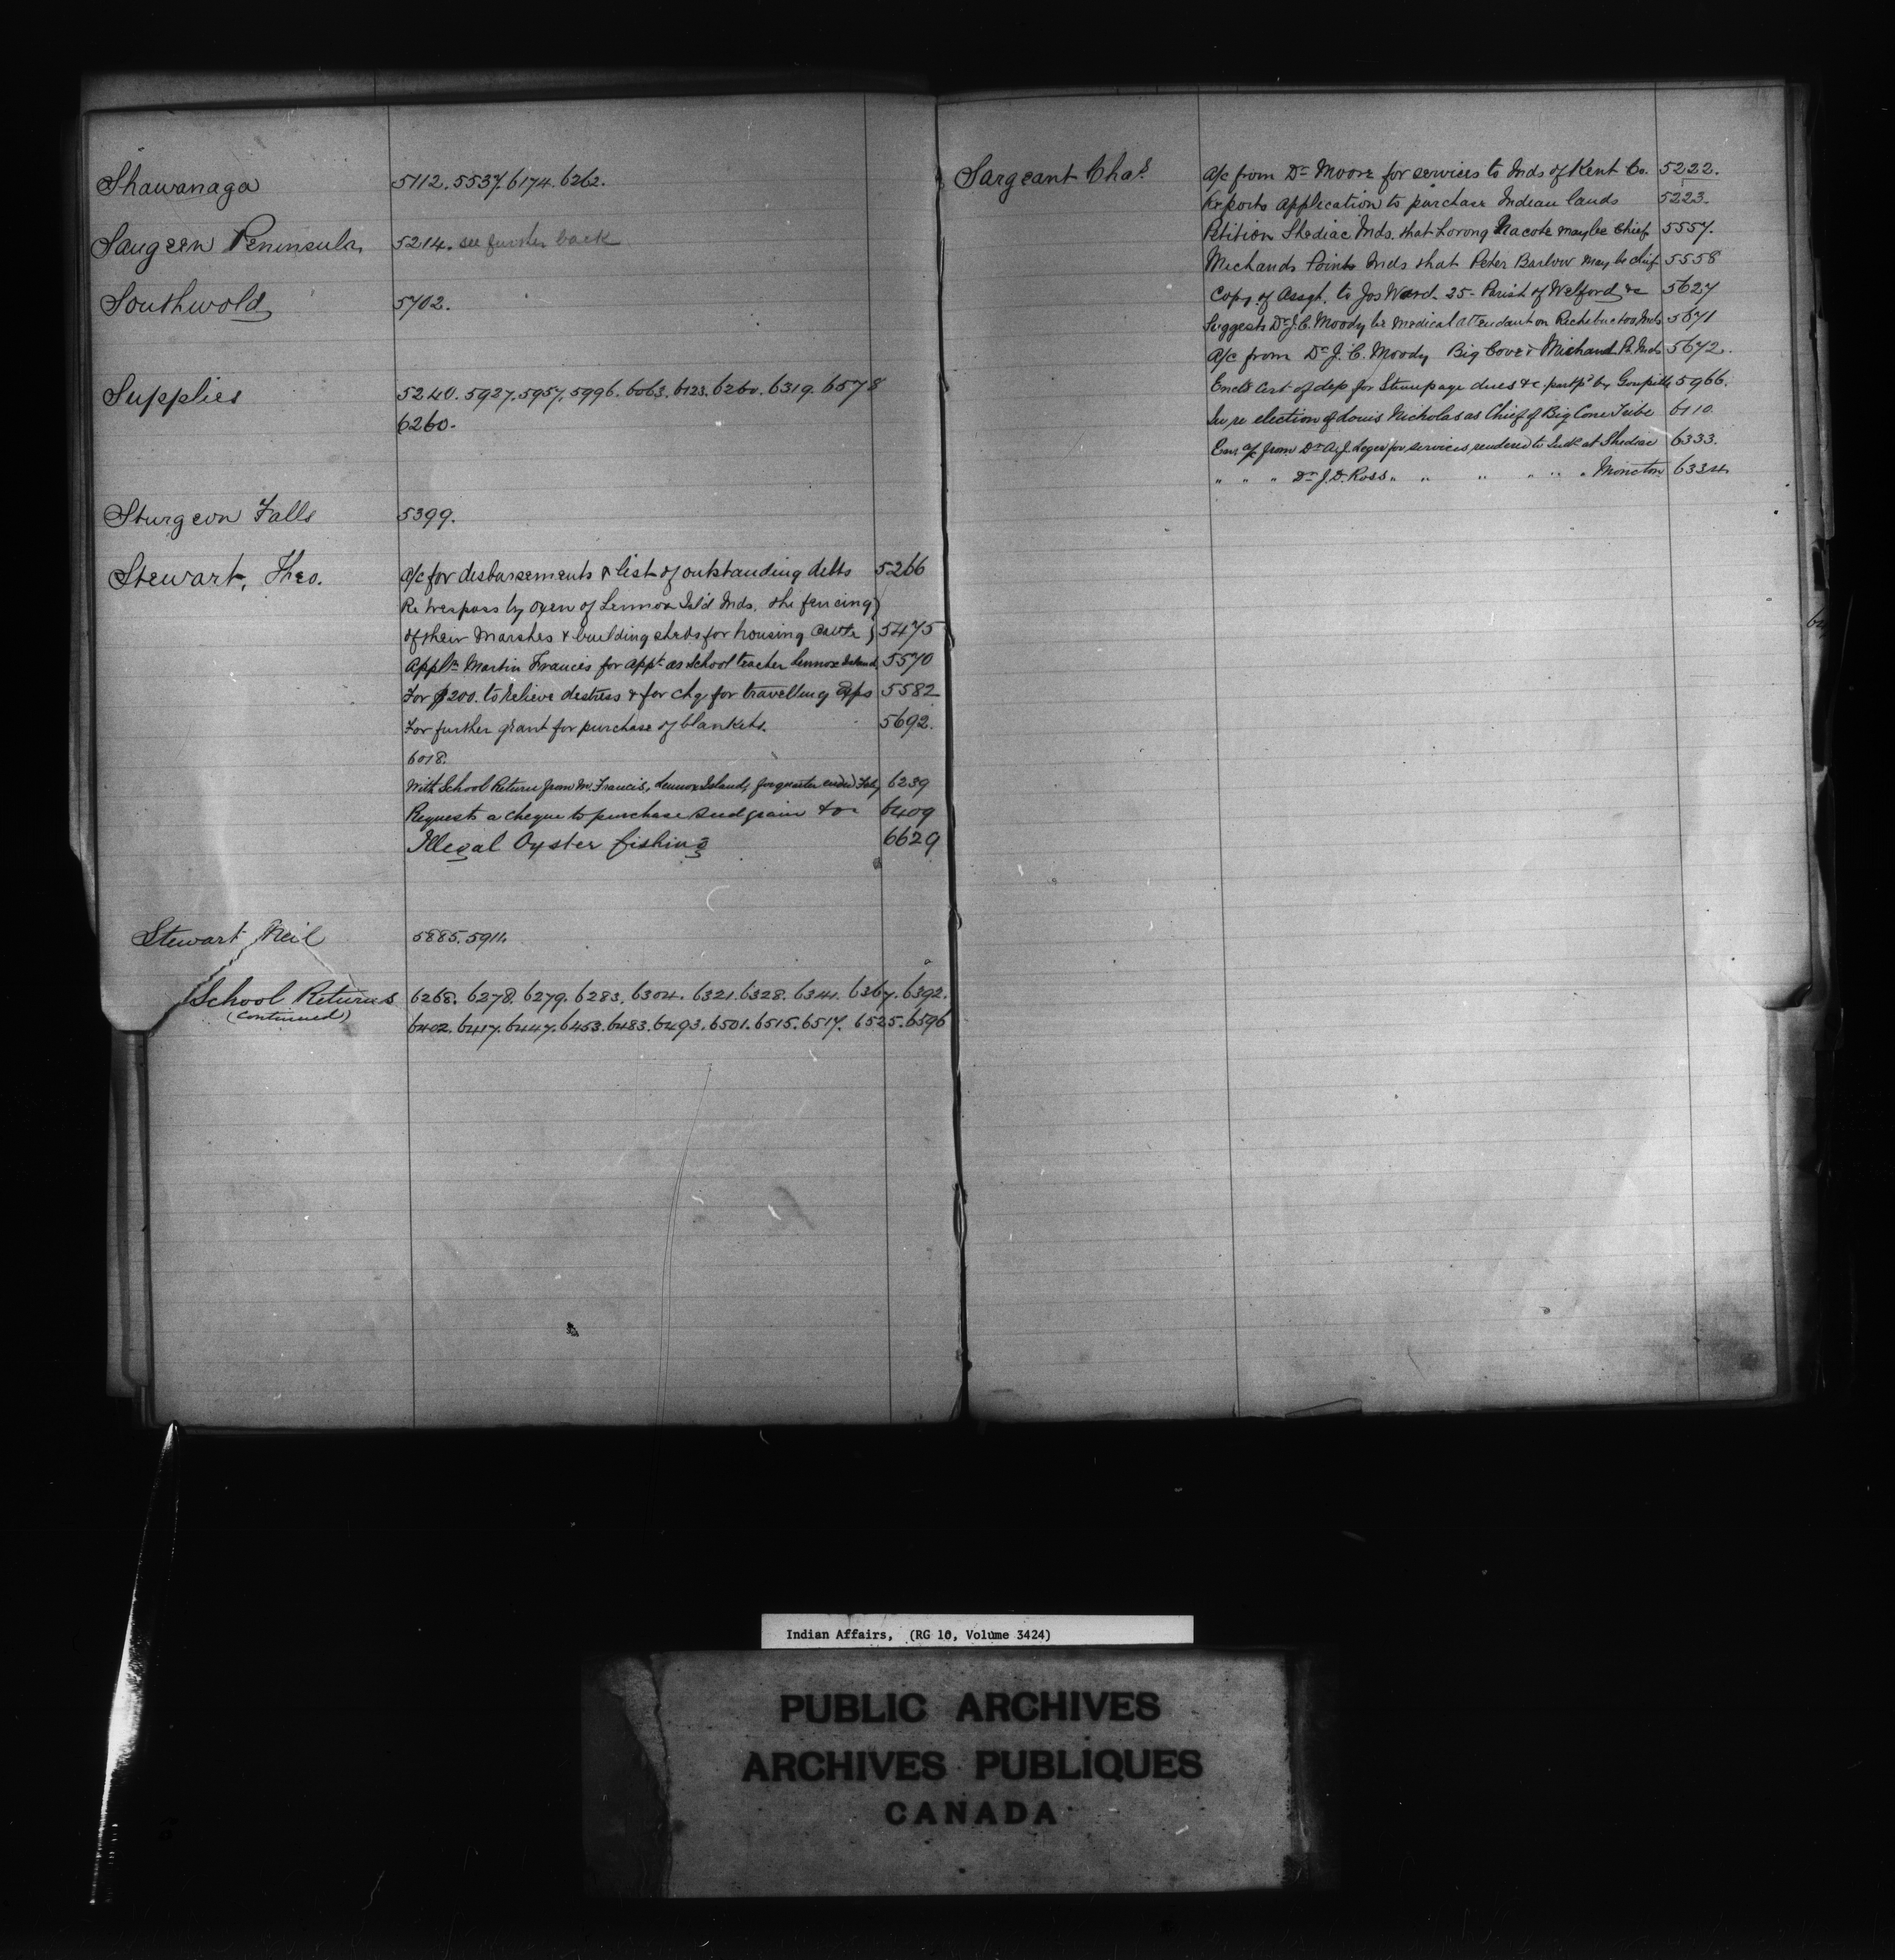 Shawanaga 5112. 5537. 6174. 6262.
Saugeen Peninsula 5214. see further back
Southwold 5702.
Supplies 5240. 5927. 5957. 5996. 6063. 6123. 6260. 6319. 6578
6260.
Sturgeon Falls 5399.
Stewart, Theo. A/c for disbursements & list of outstanding debts 5266
Re trespass by oxen of Lennox Isl'd Inds. the fencing
of their marshes & building sheds for housing cattle 5475
Appln Martin Francis for appt as School teacher Lennox Island 5570
For $200. to relieve distress & for chq for travelling Exps 5582
For further grant for purchase of blankets. 5692.
6018.
With School Return from M. Francis, Lennox Island, for quarter ended Feby 6239
Requests a cheque to purchase seed grain &c 6409
Illegal Oyster fishing 6629
Stewart Neil 5885. 5911.
School Returns 6268. 6278. 6279. 6283. 6304. 6321. 6328. 6341. 6367. 6392.
(Continued) 6402. 6417. 6447. 6453. 6483. 6493. 6501. 6515. 6517. 6525. 6596
Sargeant Chas. A/c from Dr Moore for services to Inds of Kent Co. 5222.
Reports application to purchase Indian lands 5223.
Petition Shediac Inds. that Nacote may be Chief 5557.
Michauds Point Inds that Peter Barlow may be chief 5558
Copy of Assgt. to Jos Ward - 25 - Parish of Welford &c 5627
Suggests Dr J. C. Moody be Medical attendant on Richibuctoo Inds 5671
A/c from Dr J. C. Moody Big Cove & Michaud Pt. Inds 5672.
Encls Cert of dep for Stumpage dues &c by 5966.
In re election of Louis Nicholas as Chief of Big Cove Tribe 6110.
Enc a/c from Dr A. J. Leger for services rendered to Inds at Shediac 6333.
" " " Dr J. D. Ross " " " " " " Moncton 6334.
Indian Affairs, (RG 10, Volume 3424)
PUBLIC ARCHIVES
ARCHIVES PUBLIQUES
CANADA